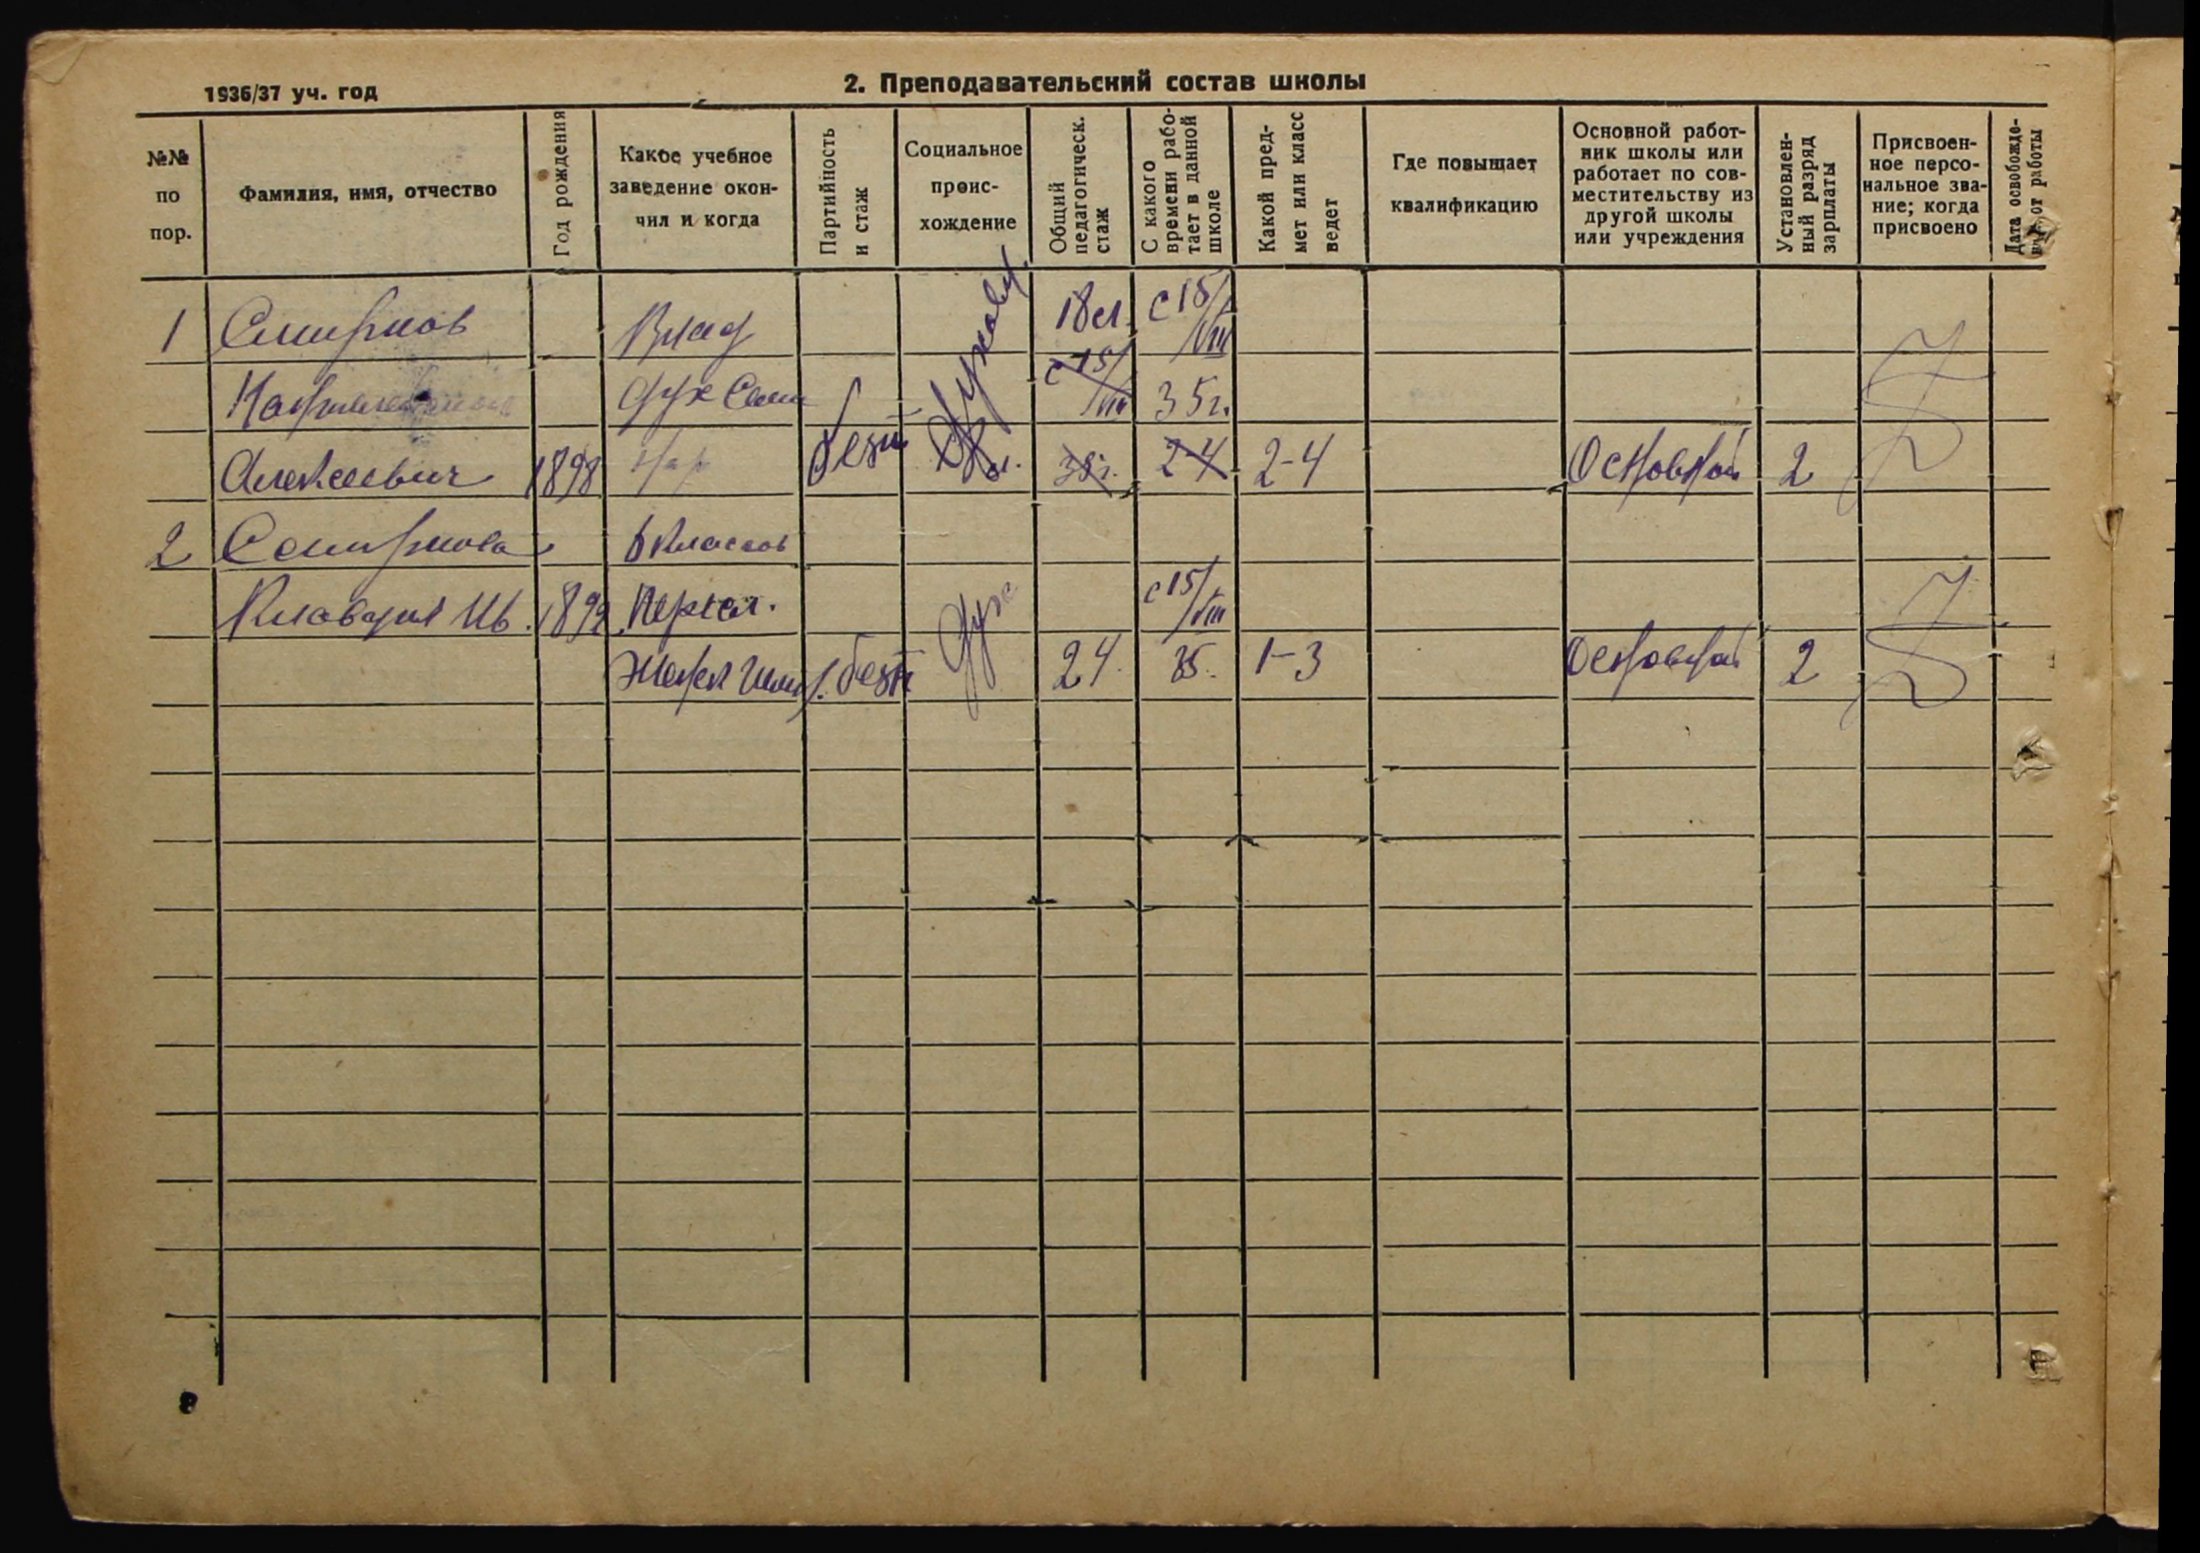 1936/37 уч. год
2. Преподавательский состав школы
№№ по пор.
Фамилия, имя, отчество
Год рождения
Какое учебное заведение окончил и когда
Партийность и стаж
Социальное происхождение
Общий педагогическ. стаж
С какого времени работает в данной школе
Какой предмет или класс ведет
Где повышает квалификацию
Основной работник школы или работает по совместительству из другой школы или учреждения
Установленный разряд зарплаты
Присвоенное персональное звание; когда присвоено
Дата освобождения от работы
1 Смирнов Влад Духовн. 18 л. с 15/VIII
дух Сем с 15/VIII 35 г.
Алексеевич 1898 безп 35 г. 2-4 2-4 Основной 2
2 Смирнова 6 классов
Клавдия Ив. 1899 с 15/VIII
безп Дух 24. 35. 1-3 Основной 2
8